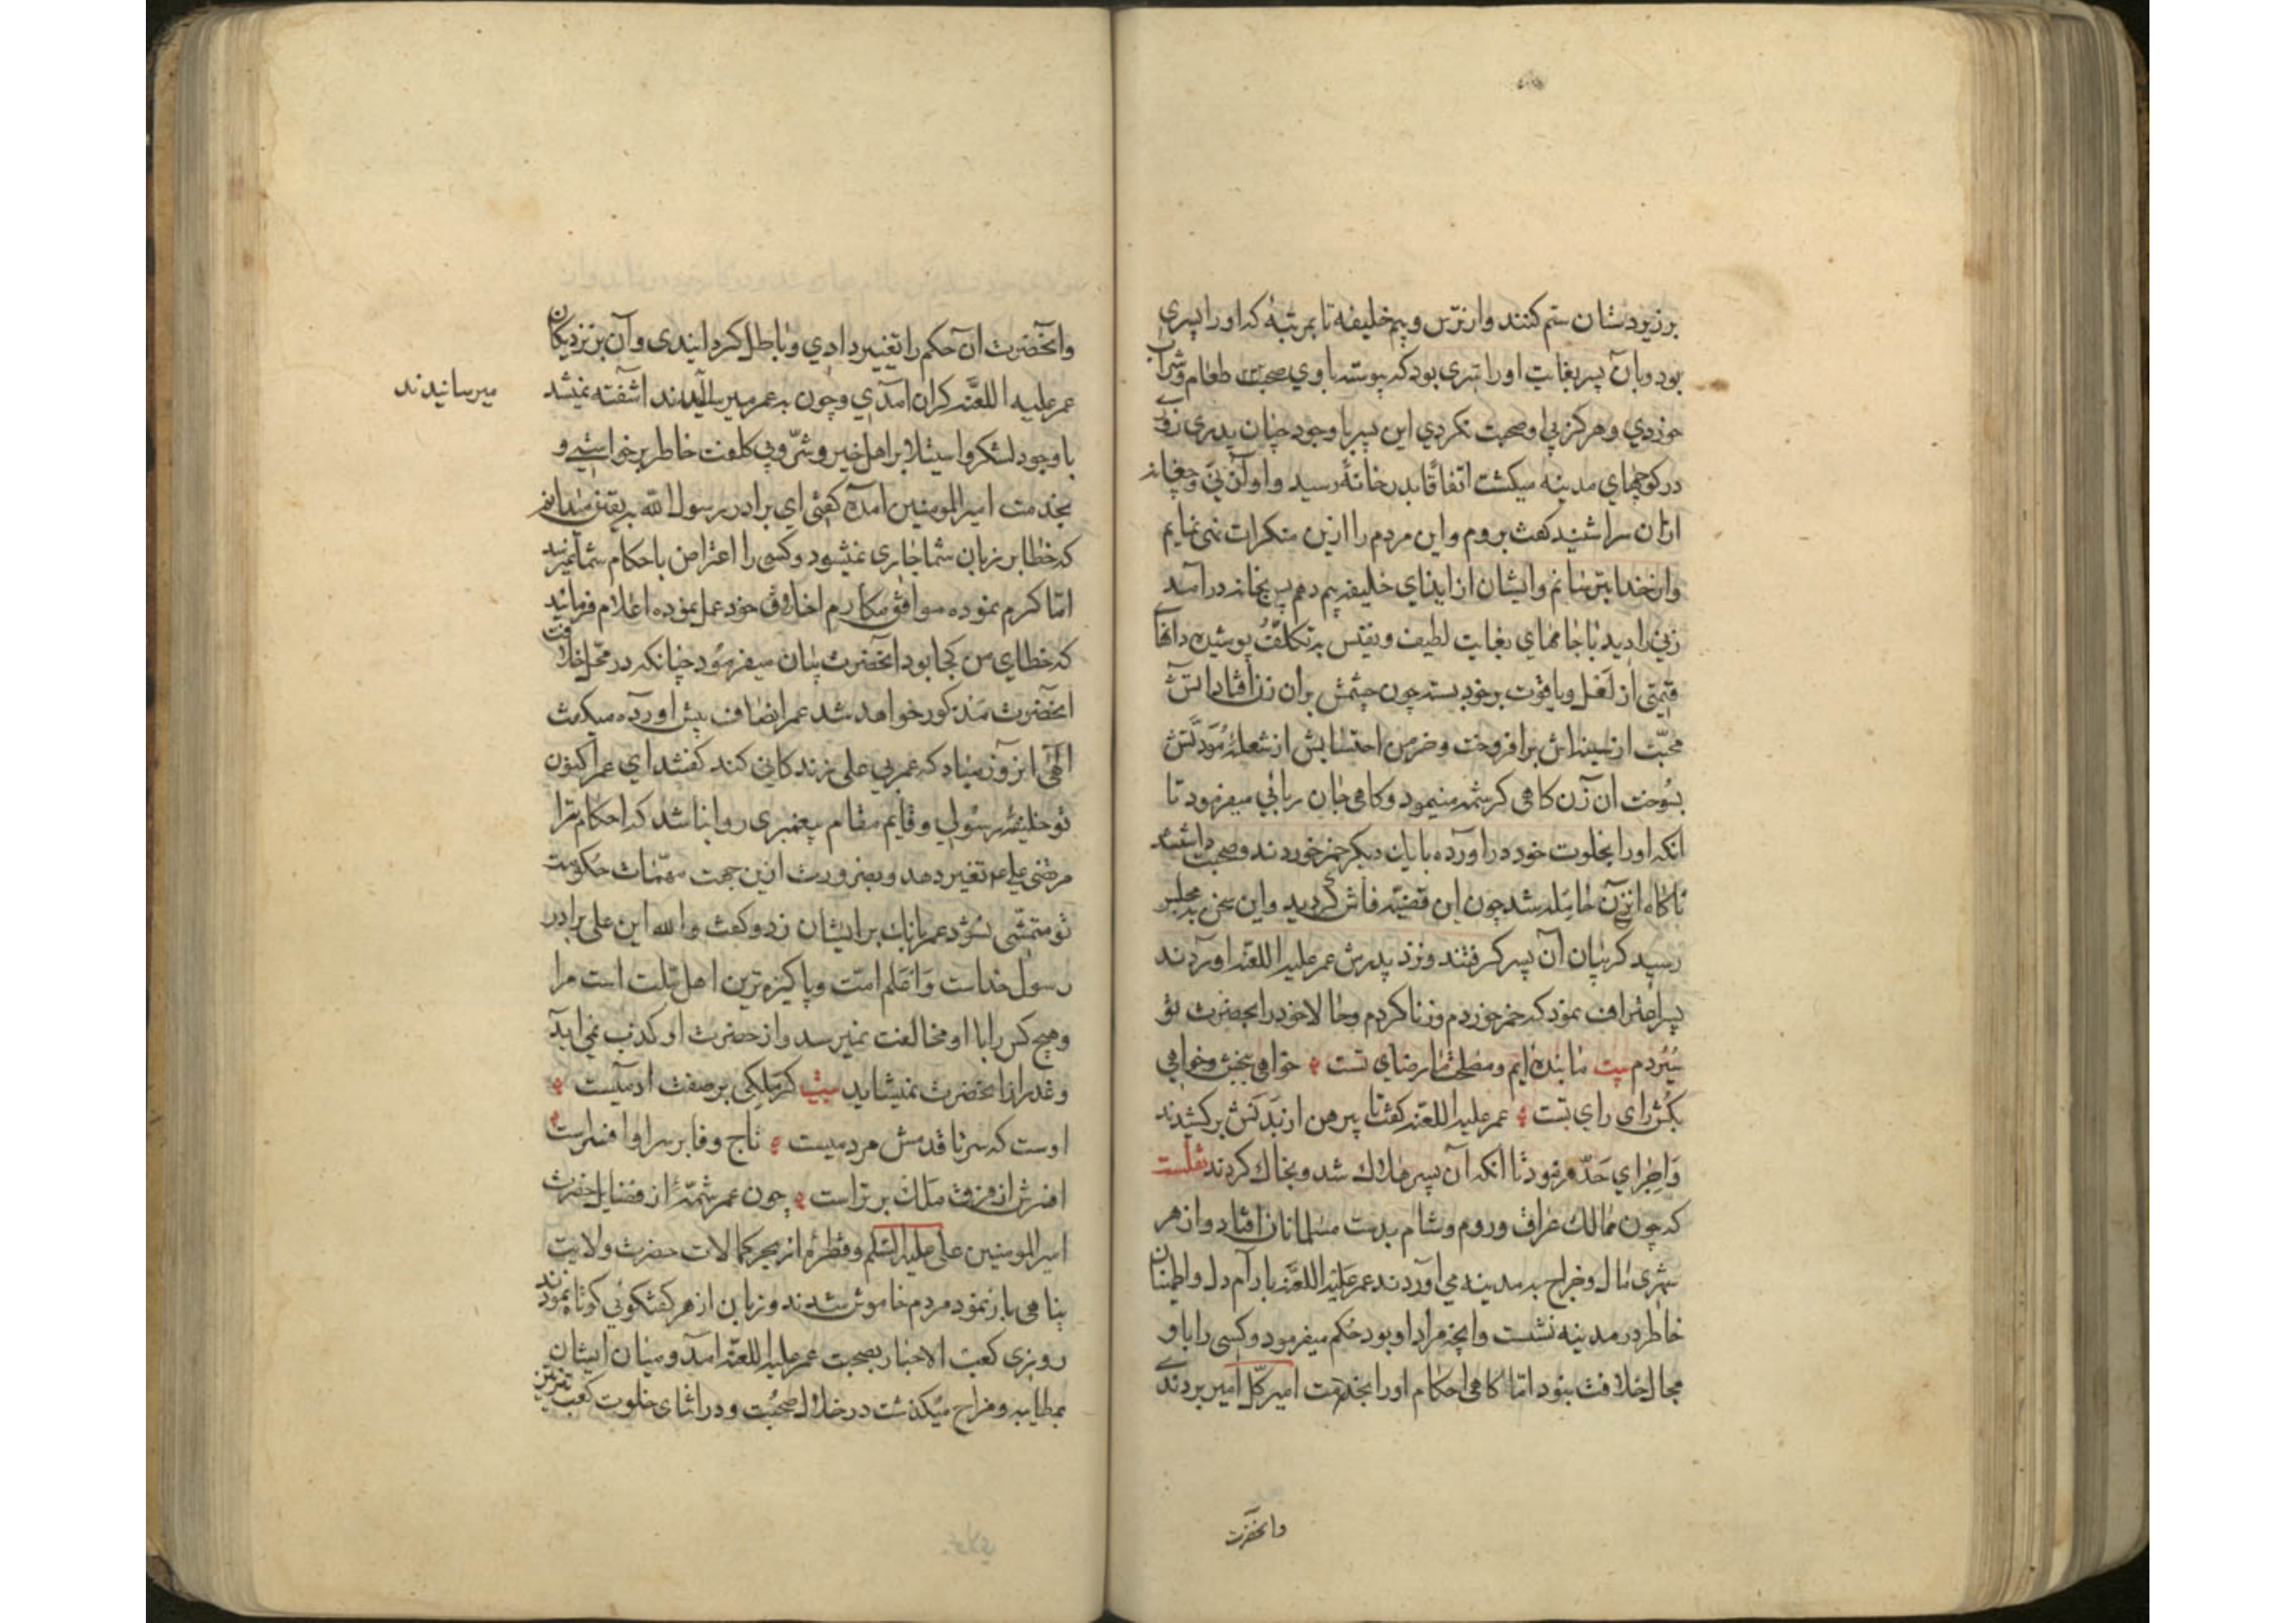 بر زیردستان ستم کنند و از ترس و بیم خلیفه تا بمرتبهٔ که او را پسری
بود و بآن پسر بغایت او را سری بود که پیوسته با وی صحبت طعام و شراب
خوردی و هرکز بی او صحبت نکردی این پسر با وجود چنان پدری روزی
در کوچهای مدینه میکشت اتفاقا بدر خانهٔ رسید و آواز نی و چغانه
ازان سرا شنید کفت بروم و این مردم را ازین منکرات نهی نمایم
و از خدا بترسانم و ایشان از ایذای خلیفه بیم دهم پس بخانه درآمد
زنی را دید با جامهای بغایت لطیف و نفیس به تکلف پوشیده دانهای
قیمتی از لعل و یاقوت بر خود بسته چون چشمش بران زن افتاد آتش
محبت از سینه‌اش برافروخت و خرمن احتسابش از شعلهٔ مودتش
بسوخت آن زن کاهی کرشمه مینمود و کاهی جان ربائی میفرمود تا
آنکه او را بخلوت خود درآورده با یکدیکر خمر خوردند و صحبت داشتند
ناکاه آن زن حامله شد چون این قضیه فاش کردید و این سخن بمجلس
رسید کریبان آن پسر کرفتند و نزد پدرش عمر علیه اللعنه آوردند
پسر اعتراف نمود که خمر خوردم و زنا کردم و حالا خود را بحضرت تو
سپردم بیت ما بنده‌ایم و مصلحت ما رضای تست خواهی ببخش و خواهی
بکش رای رای تست عمر علیه اللعنه کفت تا پیرهن از بدنش برکشیدند
و اجرای حد فرمود تا آنکه آن پسر هلاک شد و بخاک کردند نقلست
که چون ممالک عراق و روم و شام بدست مسلمانان افتاد و از هر
شهری مال و خراج به مدینه می‌آوردند عمر علیه اللعنه بآرام دل و اطمینان
خاطر در مدینه نشست و آنچه مراد او بود حکم میفرمود و کسی را با او
مجال خلافت نبود اما کاهی احکام او را بخدمت امیر کل امیر بردندی
وانحضرت
وانحضرت آن حکم را تغییر دادی و باطل کردانیدی و آن بر نزدیکان
عمر علیه اللعنه کران آمدی و چون به عمر میرسانیدند آشفته نمیشد
میرسانیدند
با وجود لشکر و استیلا بر اهل خیر و شر و بی کلفت خاطر برخواستی و
بخدمت امیر المومنین آمده کفتی ای برادر رسول الله به یقین میدانم
که خطا بر زبان شما جاری نمیشود و کسی را اعتراض باحکام شما نمیرسد
اما کرم نموده موافق مکارم اخلاق خود عمل نموده اعلام فرمائید
که خطای من کجا بود آنحضرت بیان میفرمود چنانکه در محل خلافت
آنحضرت مذکور خواهد شد عمر انصاف پیش آورده میکفت
الهی آن روز مباد که عمر بی علی زندکانی کند کفتند ای عمر اکنون
تو خلیفهٔ رسولی و قایم مقام پیغمبری روا نباشد که احکام ترا
مرتضی علی ع تغییر دهد و بضرورت ازین جهت مهمات حکومت
تو متمشی نشود عمر بانک بر ایشان زد و کفت والله این علی برادر
رسول خداست و اعلم امت و پاکیزه‌ترین اهل ملت است مرا
و هیچ کس را با او مخالفت نمیرسد و از حضرت او کذب نمی‌آید
و غدر از آنحضرت نمیشاید بیت کر ملکی بر صفت آدمیست
اوست که سر تا قدمش مردمیست تاج وفا بر سر او افسر است
افسرش از فرق ملک برتر است چون عمر شمهٔ از فضایل حضرت
امیر المومنین علی علیه السلم و قطرهٔ از بحر کمالات حضرت ولایت
پناهی باز نمود مردم خاموش شدند و زبان از هر کفتکوئی کوتاه نمودند
روزی کعب الاحبار بصحبت عمر علیه اللعنه آمد و میان ایشان
بمطایبه و مزاح میکذشت در خلال صحبت و در اثنای خلوت کعب